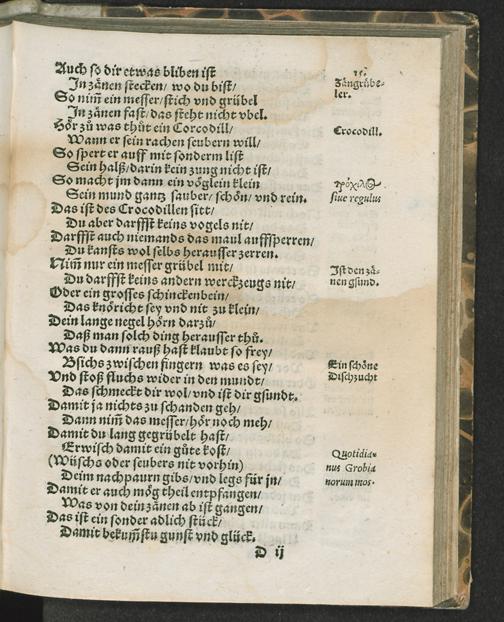 Auch so dir etwas bliben ist
In zänen stecken/ wo du bist/
So nim̃ ein messer/stich vnd grübel
In zänen fast/das steht nicht vbel.
Hör zů was thůt ein Corcodill/
Wann er sein rachen seubern will/
So spert er auff mit sonderm list
Sein halß/darin kein zung nicht ist/
So macht jm dann ein vöglein klein
Sein mund gantz sauber/ schön/ vnd rein.
Das ist des Crocodillen sitt/
Du aber darffst keins vogels nit/
Darffst auch niemands das maul auffsperren/
Du kansts wol selbs herausser zerren.
Nim̃ nur ein messer grübel mit/
Du darffst keins andern werckzeugs nit/
Oder ein grosses schinckenbein/
Das knöricht sey vnd nit zu klein/
Dein lange negel hörn darzů/
Daß man solch ding herausser thů.
Was du dann rauß hast klaubt so frey/
Bsichs zwischen fingern was es sey/
Vnd stoß fluchs wider in den mundt/
Das schmeckt dir wol/vnd ist dir gsundt.
Damit ja nichts zu schanden geh/
Dann nim̃ das messer/hör noch meh/
Damit du lang gegrübelt hast/
Erwisch damit ein gůte kost/
(Wüschs oder seubers nit vorhin)
Deim nachpaurn gibs/vnd legs für jn/
Damit er auch mög theil entpfangen/
Was von dein zänen ab ist gangen/
Das ist ein sonder adlich stück/
Damit bekum̃stu gunst vnd glück.
D ij
15.
Zängrübe-
ler.
Crocodill.
τρόχιλος
siue regulus
Ist den zä-
nen gsund.
Ein schöne
Dischzucht
Quotidia-
nus Grobia
norum mos.